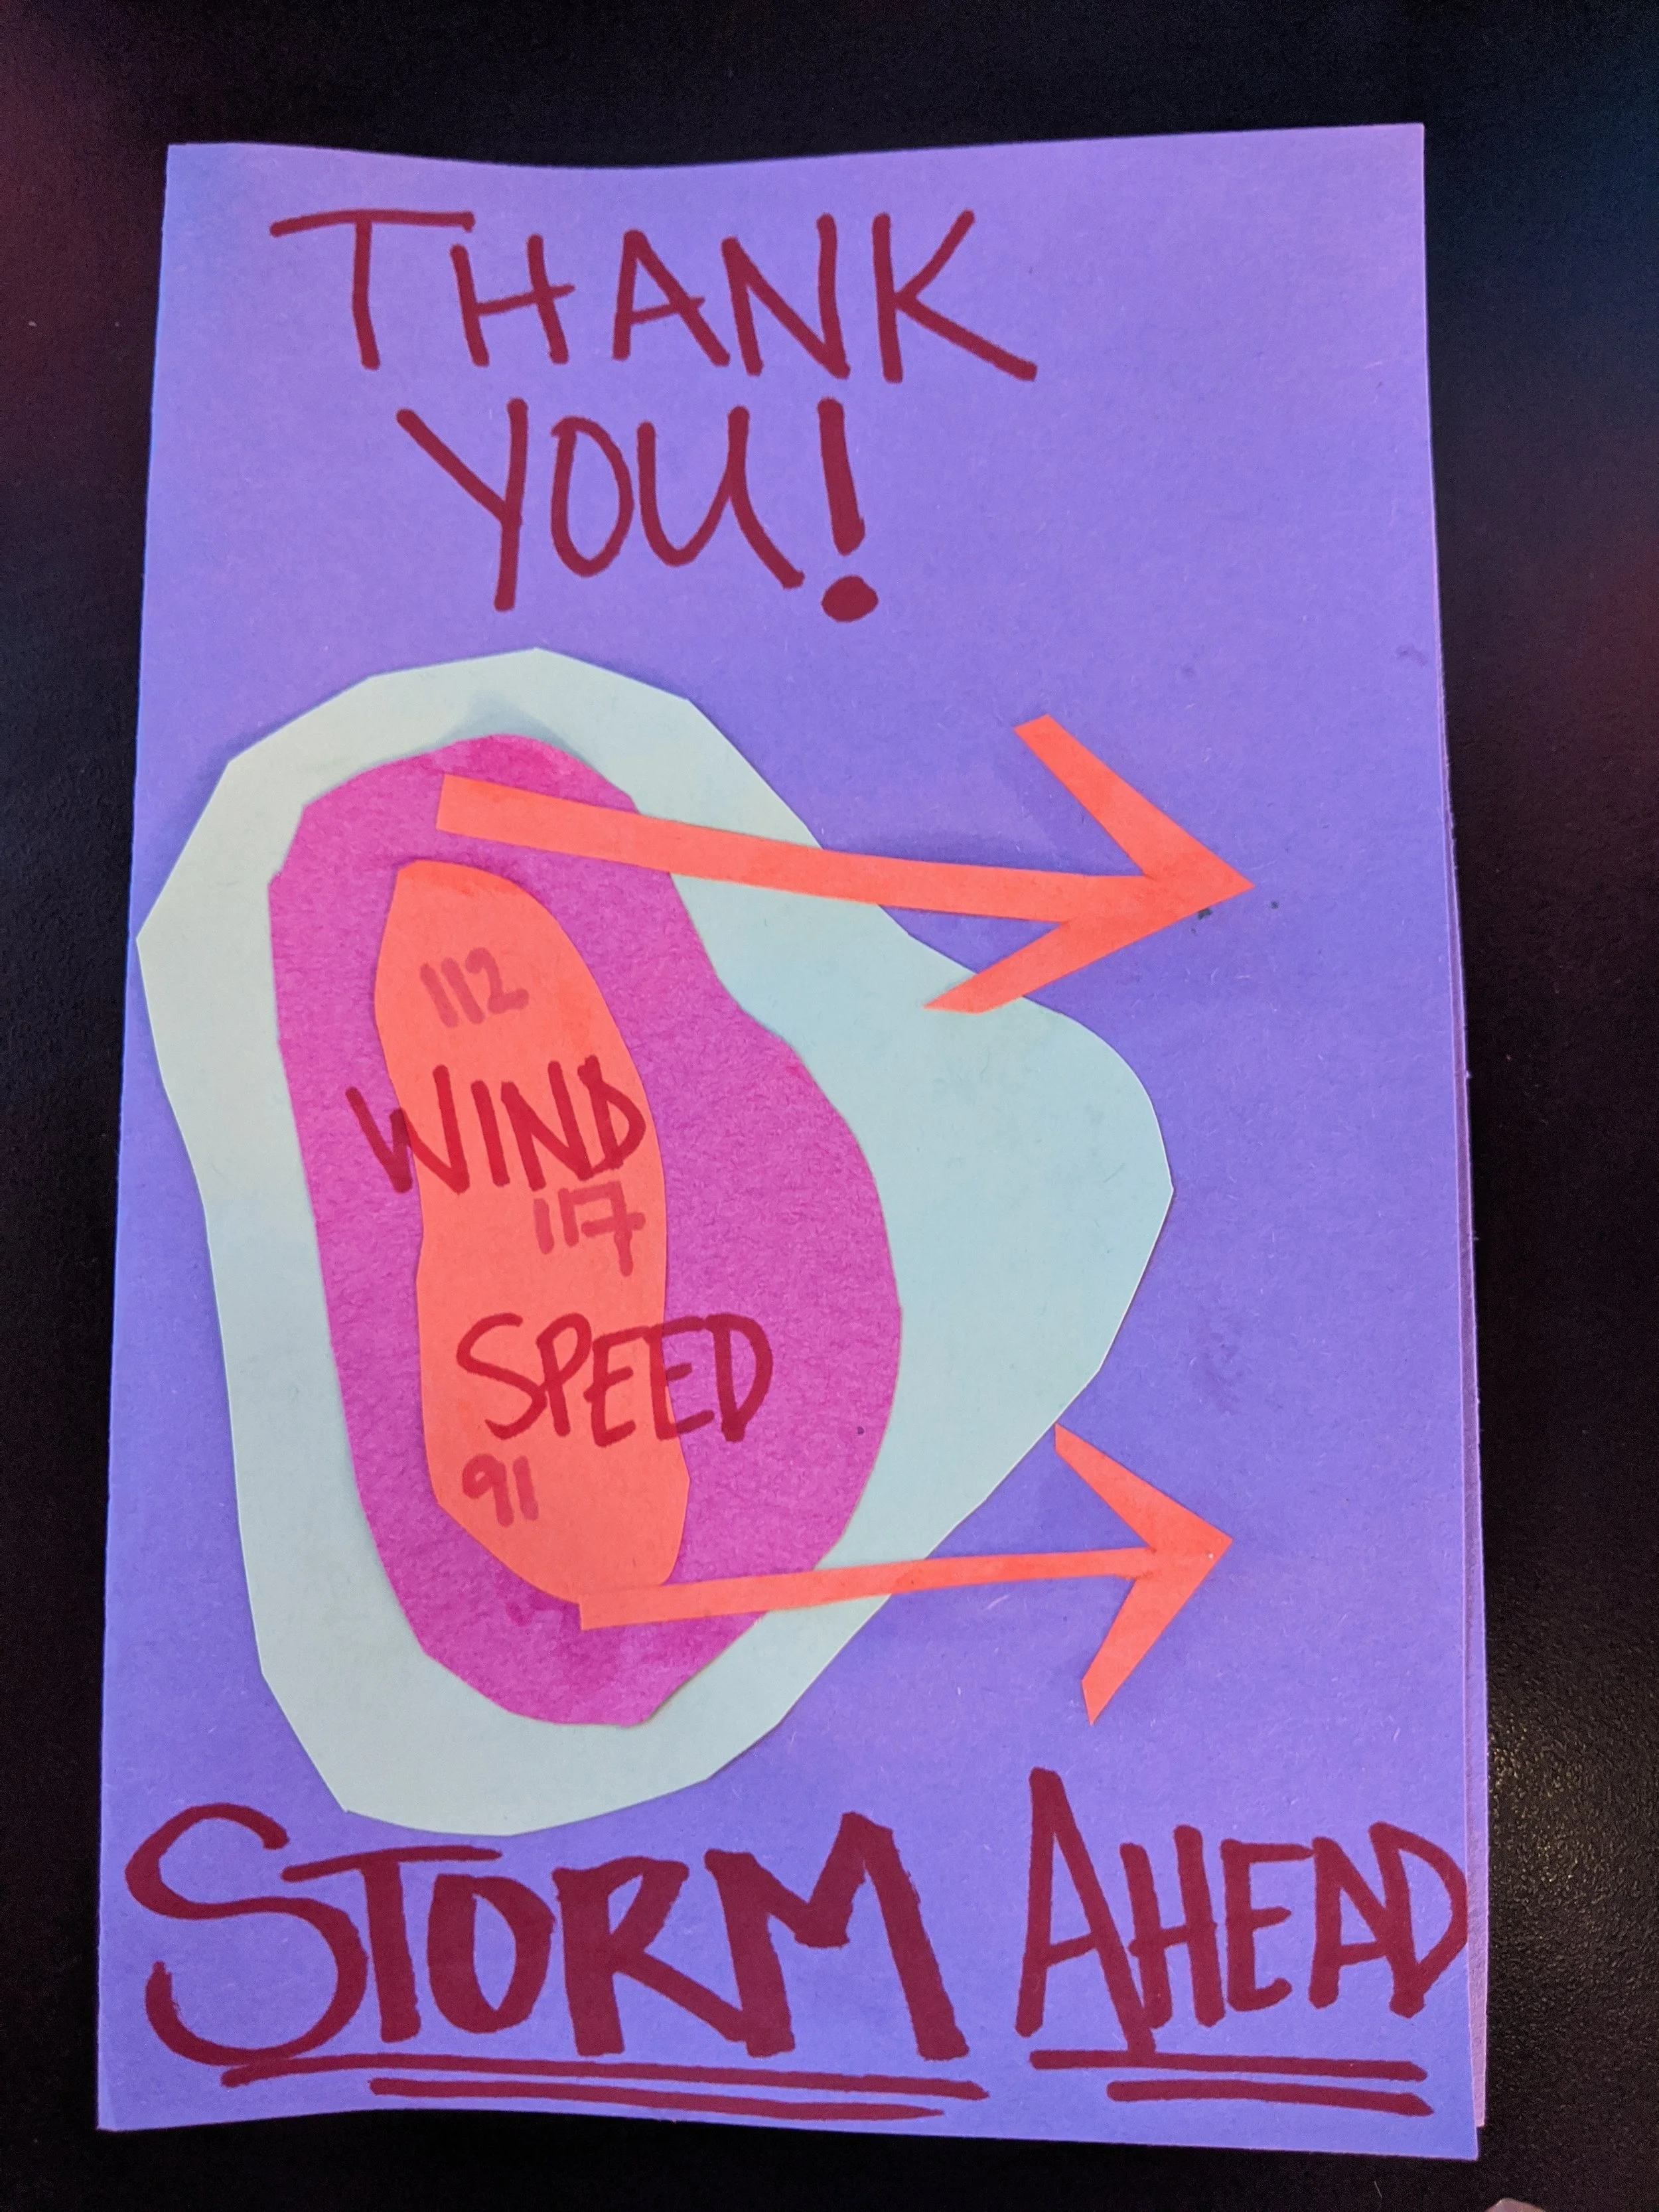 THANK
YOU!
112
WIND
117
SPEED
91
STORM AHEAD